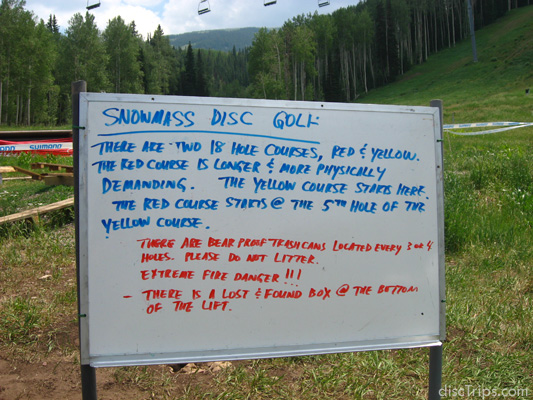 SNOWMASS DISC GOLF
THERE ARE TWO 18 HOLE COURSES, RED & YELLOW.
THE RED COURSE IS LONGER & MORE PHYSICALLY
DEMANDING. THE YELLOW COURSE STARTS HERE.
THE RED COURSE STARTS @ THE 5TH HOLE OF THE
YELLOW COURSE.
THERE ARE BEAR PROOF TRASH CANS LOCATED EVERY 3 OR 4
HOLES. PLEASE DO NOT LITTER.
EXTREME FIRE DANGER !!!
- THERE IS A LOST & FOUND BOX @ THE BOTTOM
OF THE LIFT.
SHIMANO
discTrips.com